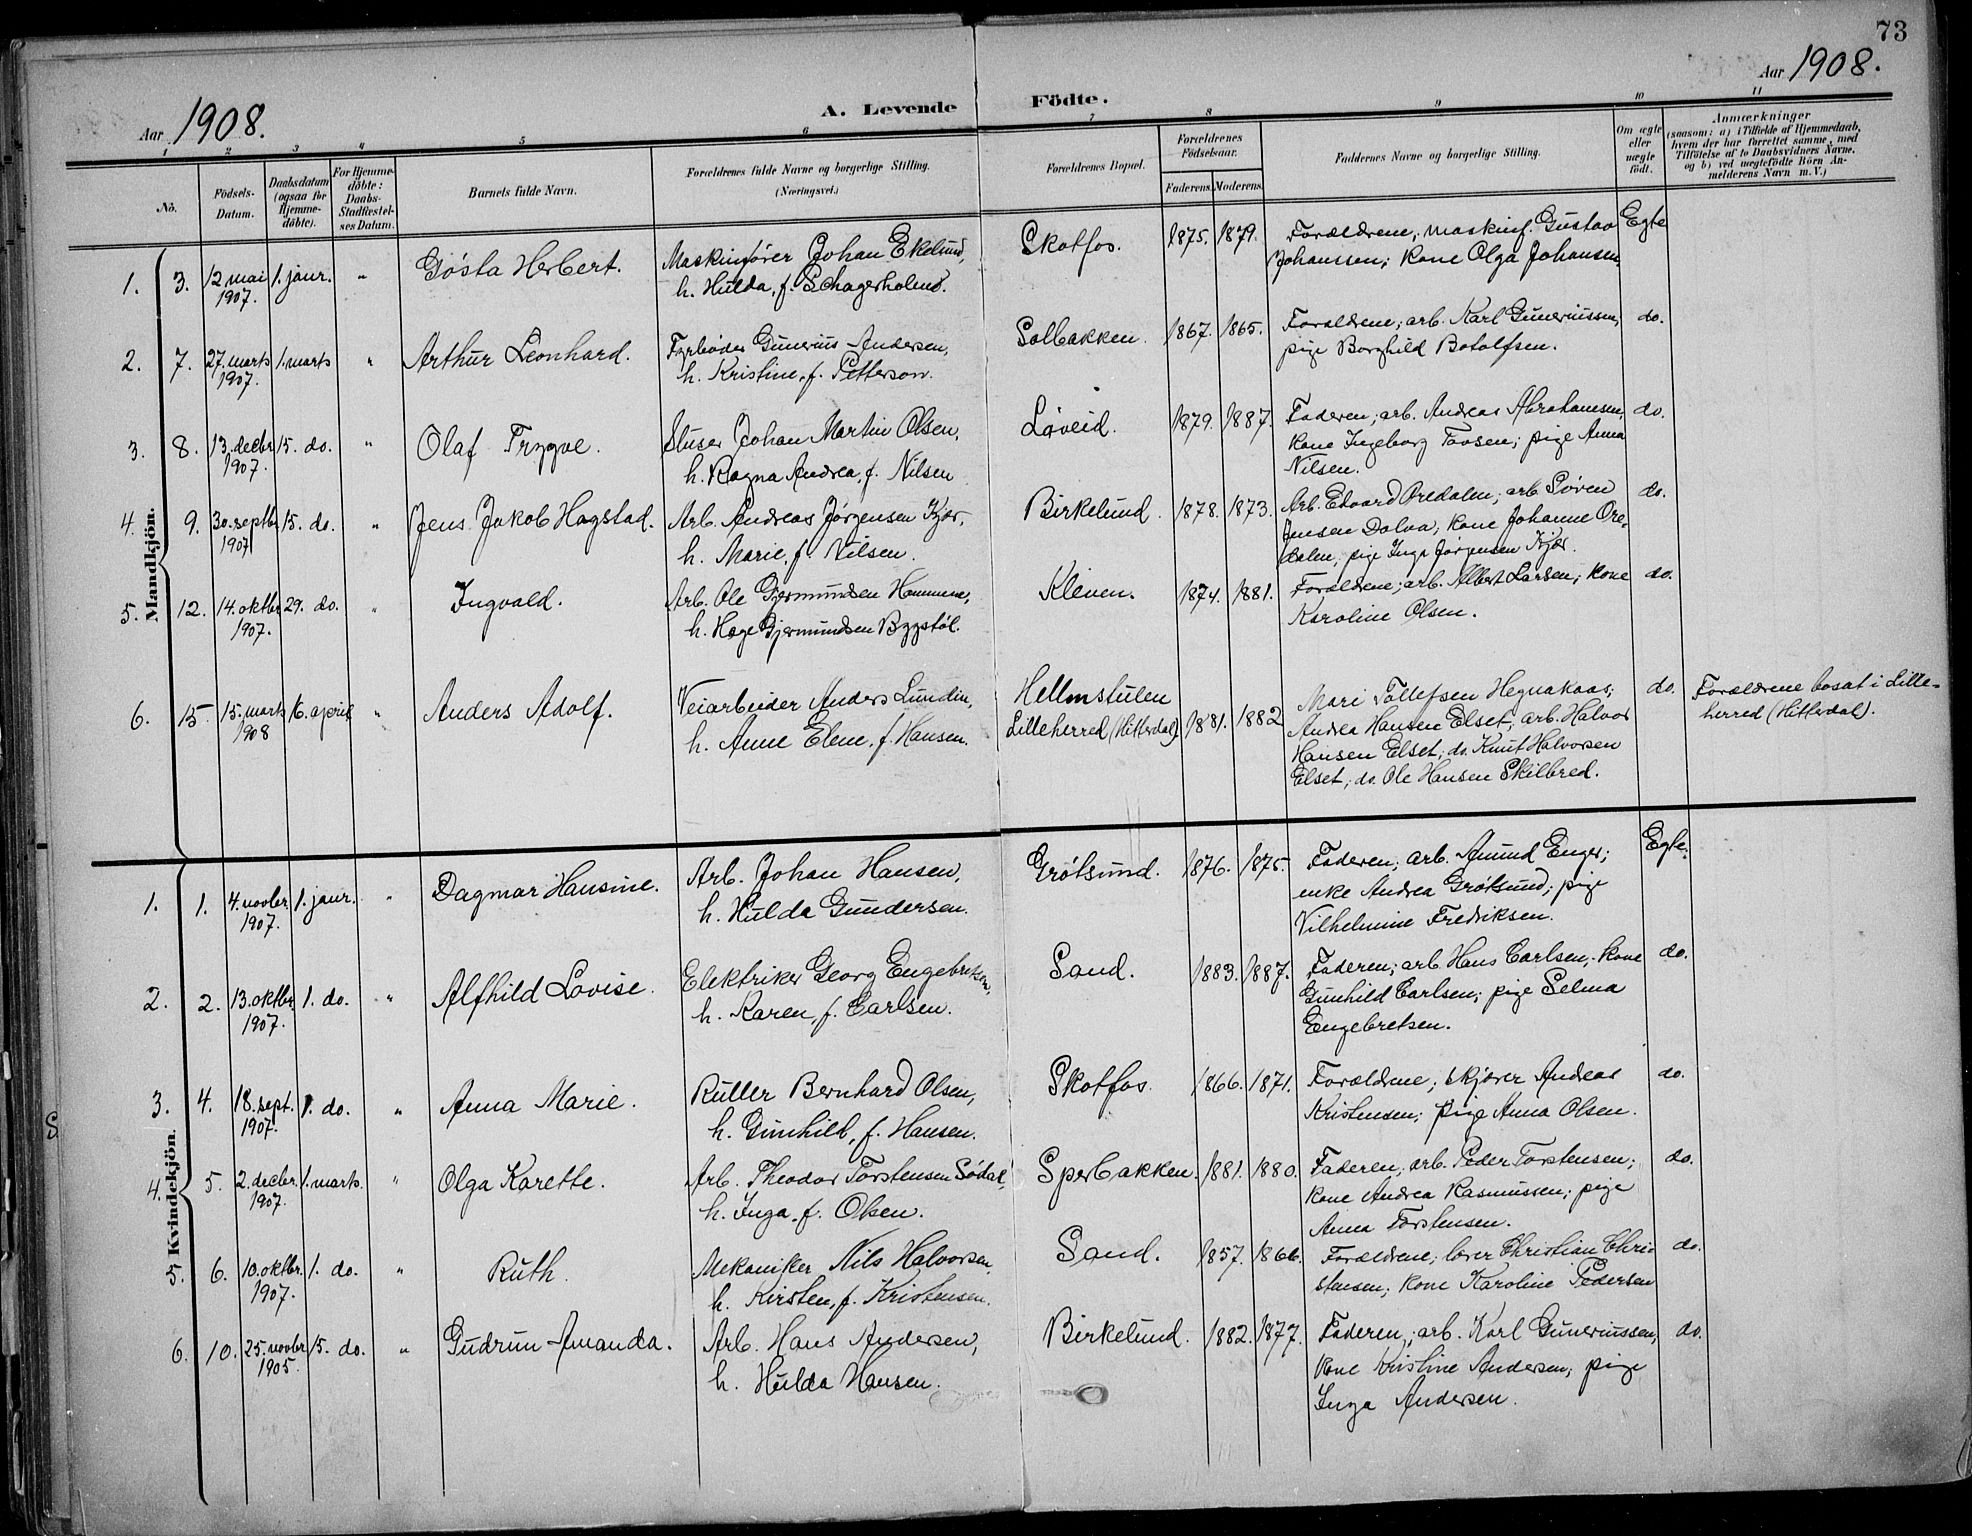 73
Aar 1908.
A. Levende Födte.
Aar 1908.
1 2 3 4 5 6 7 8 9 10 11
No.
Födsels-Datum.
Daabsdatum (ogsaa for Hjemme-döbte).
For Hjemme-döbte: Daabs-Stadfæstel-ses Datum.
Barnets fulde Navn.
Forældrenes fulde Navne og borgerlige Stilling. (Næringsvei.)
Forældrenes Bopæl.
Forældrenes Födselsaar.
Faderens. Moderens.
Faddernes Navne og borgerlige Stilling.
Om ægte eller uægte födt.
Anmærkninger
(saasom: a) i Tilfælde af Hjemmedaab, hvem der har forrettet samme, med Tilföielse af to Daabsvidners Navne, og b) ved uægtefödte Börn An-melderens Navn m. V.)
Mandkjön.
1. 3. 12 mai 1907. 1. januar. " Gösta Herbert.
Maskinfører Johan Ekelund,
h. Hulda, f. Schagerholend.
Skotfos. 1875. 1879.
Forældrene; maskinf. Gustav
Johanssen; kone Olga Johansen.
Egte
2. 7. 27. marts 1907. 1. marts " Arthur Leonhard.
Fyrbøder Gunerius Andersen,
h. Kristine, f. Petterson.
Solbakken. 1867. 1865.
Forældrene; arb. Karl Guneriussen,
pige Borghild Botolfsen.
do.
3. 8. 13. decbr. 1907. 15. do. " Olaf Trygve.
Sluser Johan Martin Olsen,
h. Ragna Andrea, f. Nilsen
Løveid. 1879. 1887.
Faderen; arb. Andreas Abrahamsen,
kone Ingeborg Tovsen; pige Anna
Nilsen.
do.
4. 9. 30. septbr 1907 15. do. " Jens Jakob Hagstad.
Arb. Andreas Jørgensen Kjær,
h. Marie, f. Nilsen.
Birkelund. 1878. 1873.
Arb. Edvard Oredalen; arb. Søren
Jensen Dolva; kone Johanne Ore-
dalen; pige Inga Jørgensen Kjær.
do.
5. 12. 14. oktbr 1907. 29. do. " Ingvald.
Arb. Ole Gjermundsen Hommene,
h. Hæge Gjermundsen Bygstöl.
Kleven. 1874. 1881.
Forældrene; arb. Albert Larsen; kone
Karoline Olsen.
do.
6. 15. 15. marts 1908 16. april " Anders Adolf.
Veiarbeider Anders Lundin,
h. Anne Elene, f. Hansen.
Hellmstulen
Lilleherred (Hitterdal) 1881. 1882
Mari Tollefsen Hegnakaas;
Andrea Hansen Elset; arb. Halvor
Hansen Elset; do. Knut Halvorsen
Elset; do. Ole Hansen Skilbred.
do.
Forældrene bosat i Lille-
herred (Hitterdal).
Kvindekjön.
1. 1. 4. novbr. 1907. 1. januar. " Dagmar Hansine.
Arb. Johan Hansen,
h. Hulda Gundersen.
Grötsund. 1876. 1875.
Faderen; arb. Amund Enger;
enke Andrea Grötsund; pige
Vilhelmine Fredriksen.
Egte.
2. 2. 13. oktbr. 1907. 1. do. " Alfhild Lovise.
Elektriker Georg Engebretsen,
h. Karen, f. Carlsen.
Sand. 1883. 1887.
Faderen; arb. Hans Carlsen; kone
Gunhild Carlsen; pige Selma
Engebretsen.
do.
3. 4. 18. sept. 1907. 1. do. " Anna Marie.
Ruller Bernhard Olsen,
h. Gunhild, f. Hansen.
Skotfos 1866. 1871.
Forældrene; skjærer Andreas
Kristensen; pige Anna Olsen.
do.
4. 5. 2. decbr. 1907. 1. marts. " Olga Karette.
Arb. Theodor Torstensen Södal,
h. Inga, f. Olsen.
Sperbakken. 1881. 1880.
Faderen; arb. Peder Torstensen;
kone Andrea Rasmussen; pige
Anna Torstensen.
do.
5. 6. 10. oktbr. 1907. 1. do. " Ruth.
Mekaniker Nils Halvorsen,
h. Kirsten, f. Kristensen.
Sand. 1857. 1866.
Forældrene; lærer Christian Chri-
stensen; kone Karoline Pedersen
do.
6. 10. 25. novbr 1905. 15. do. " Gudrun Amanda.
Arb. Hans Andersen,
h. Hulda Hansen.
Birkelund. 1882. 1877.
Faderen; arb. Karl Guneriussen,
kone Kristine Andersen; pige
Inga Andersen.
do.